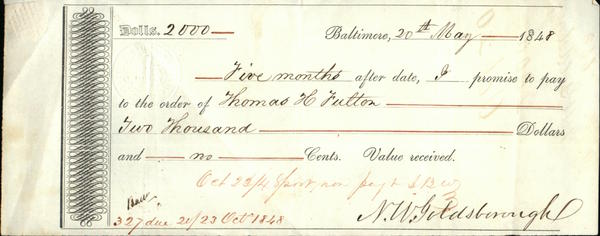 Dolls. 2000 Baltimore, 20th May 1848
Five months after date, I promise to pay
to the order of Thomas H Fulton
Two Thousand Dollars
and no Cents. Value received.
Oct 23/4 non
N. W. Goldsborough
327 due 20/23 Oct 1848